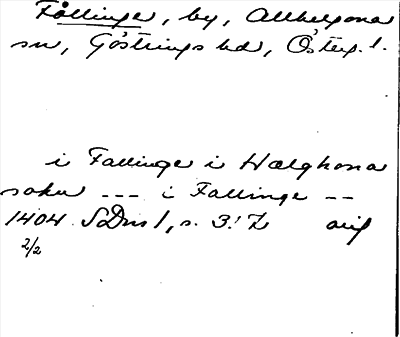 Fållinge, by, Allhelgona
sn, Göstrings hd, Österg. l.
i Fallinge i Hælghona
sokn --- i Fallinge --
1404 SDns 1, s. 317 orig
2/2